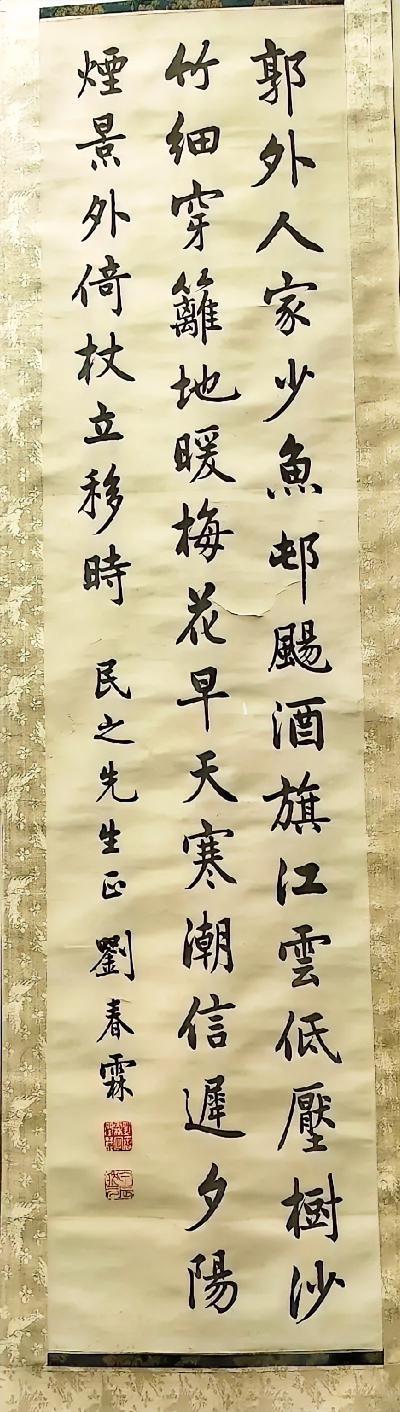 郭外人家少魚邨颺酒旗江雲低壓樹沙
竹細穿籬地暖梅花早天寒潮信遲夕陽
煙景外倚杖立移時 民之先生正 劉春霖